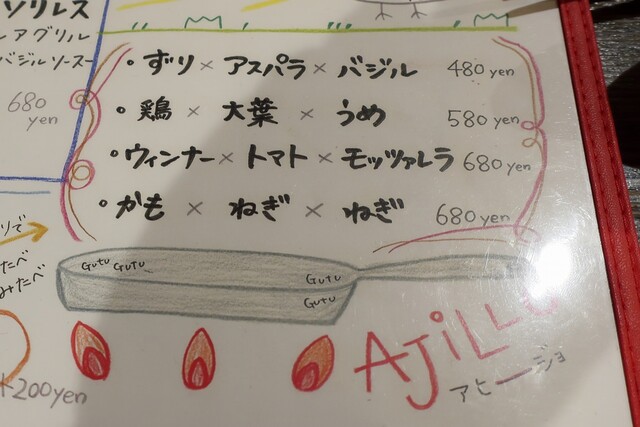 ソリレス
レアグリル
バジルソース
680
yen
・ずり × アスパラ × バジル 480 yen
・鶏 × 大葉 × うめ 580 yen
・ウィンナー × トマト × モッツァレラ 680 yen
・かも × ねぎ × ねぎ 680 yen
GUTU GUTU
GUTU
GUTU
AJiLLO
アヒージョ
+200yen